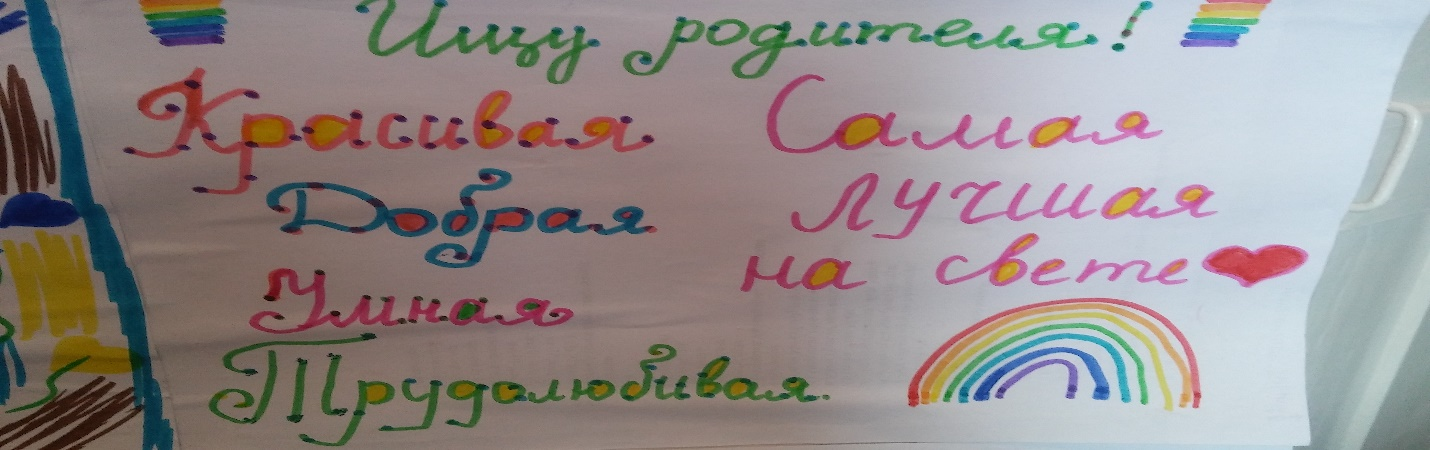 Ищу родителя!
Красивая
Добрая
Умная
Трудолюбивая.
Самая
лучшая
на свете